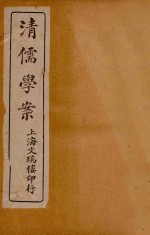 清儒學案
上海文瑞樓印行